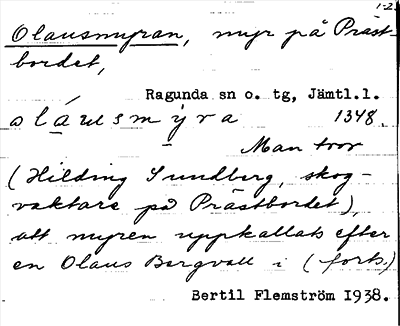 1-2.
Olausmyran, myr på Präst-
bordet,
Ragunda sn o. tg, Jämtl.l.
oláusmỳra 1348.
Man tror
(Hilding Sundberg, skog-
vaktare på Prästbordet),
att myren uppkallats efter
en Olaus Bergvall i (forts.)
Bertil Flemström 1938.